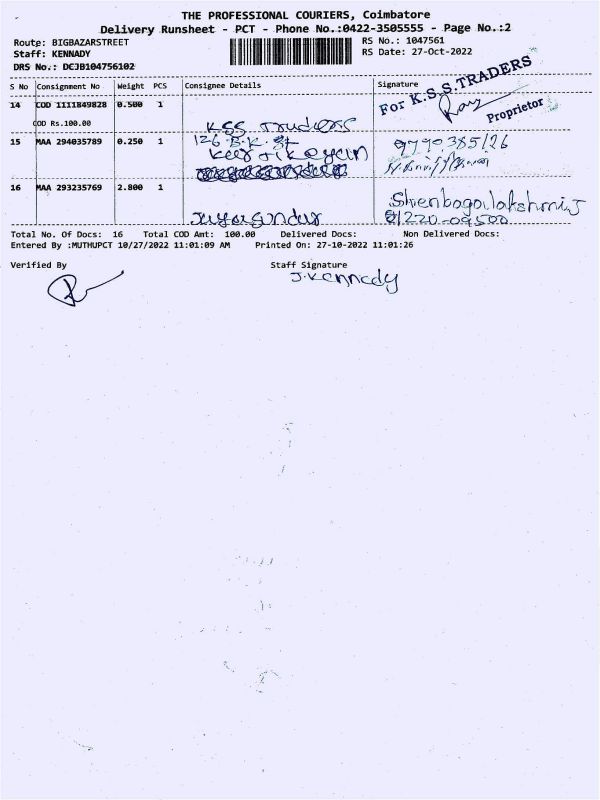 THE PROFESSIONAL COURIERS, Coimbatore
Delivery Runsheet - PCT - Phone No.:0422-3505555 - Page No.:2
Route: BIGBAZARSTREET
RS No.: 1047561
Staff: KENNADY
RS Date: 27-Oct-2022
DRS No.: DCJB104756102
S No Consignment No Weight PCS Consignee Details Signature
For K.S.S.TRADERS
Proprietor
14 COD 1111849828 0.500 1
COD Rs.100.00
KSS Traders
15 MAA 294035789 0.250 1
126 B.K. St
9790385126
16 MAA 293235769 2.800 1
Shenbagalakshmi J
Total No. Of Docs: 16 Total COD Amt: 100.00 Delivered Docs: Non Delivered Docs:
Entered By :MUTHUPCT 10/27/2022 11:01:09 AM Printed On: 27-10-2022 11:01:26
Verified By Staff Signature
J.Kennady